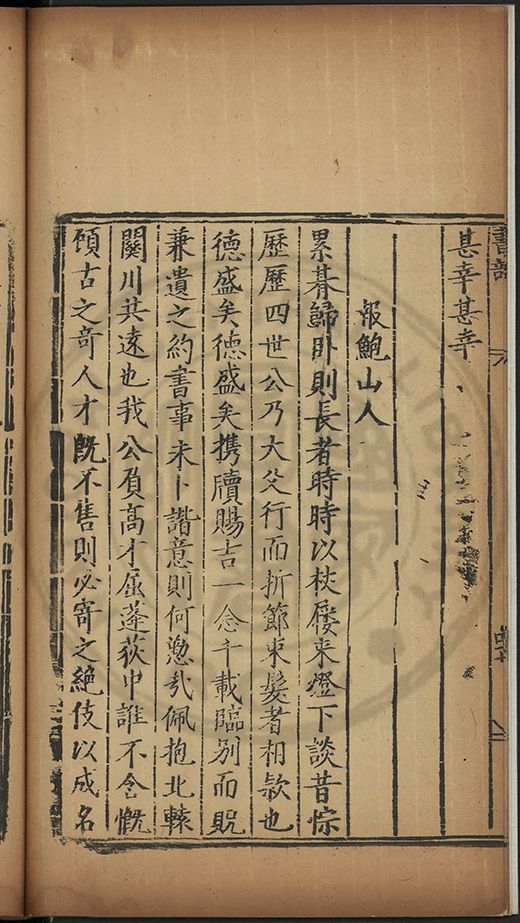 甚幸甚幸
報鮑山人
累朞歸卧則長者時時以杖屨来燈下談昔悰
歷歷四世公乃大父行而折節束髮者相欵也
德盛矣德盛矣携牘賜吉一念千載臨别而貺
兼遺之約書事未卜諧意則何愬㢤佩抱北轅
關川共遠也我公負高才屈蓬荻中誰不含慨
顧古之竒人才旣不售則必寄之絶伎以成名